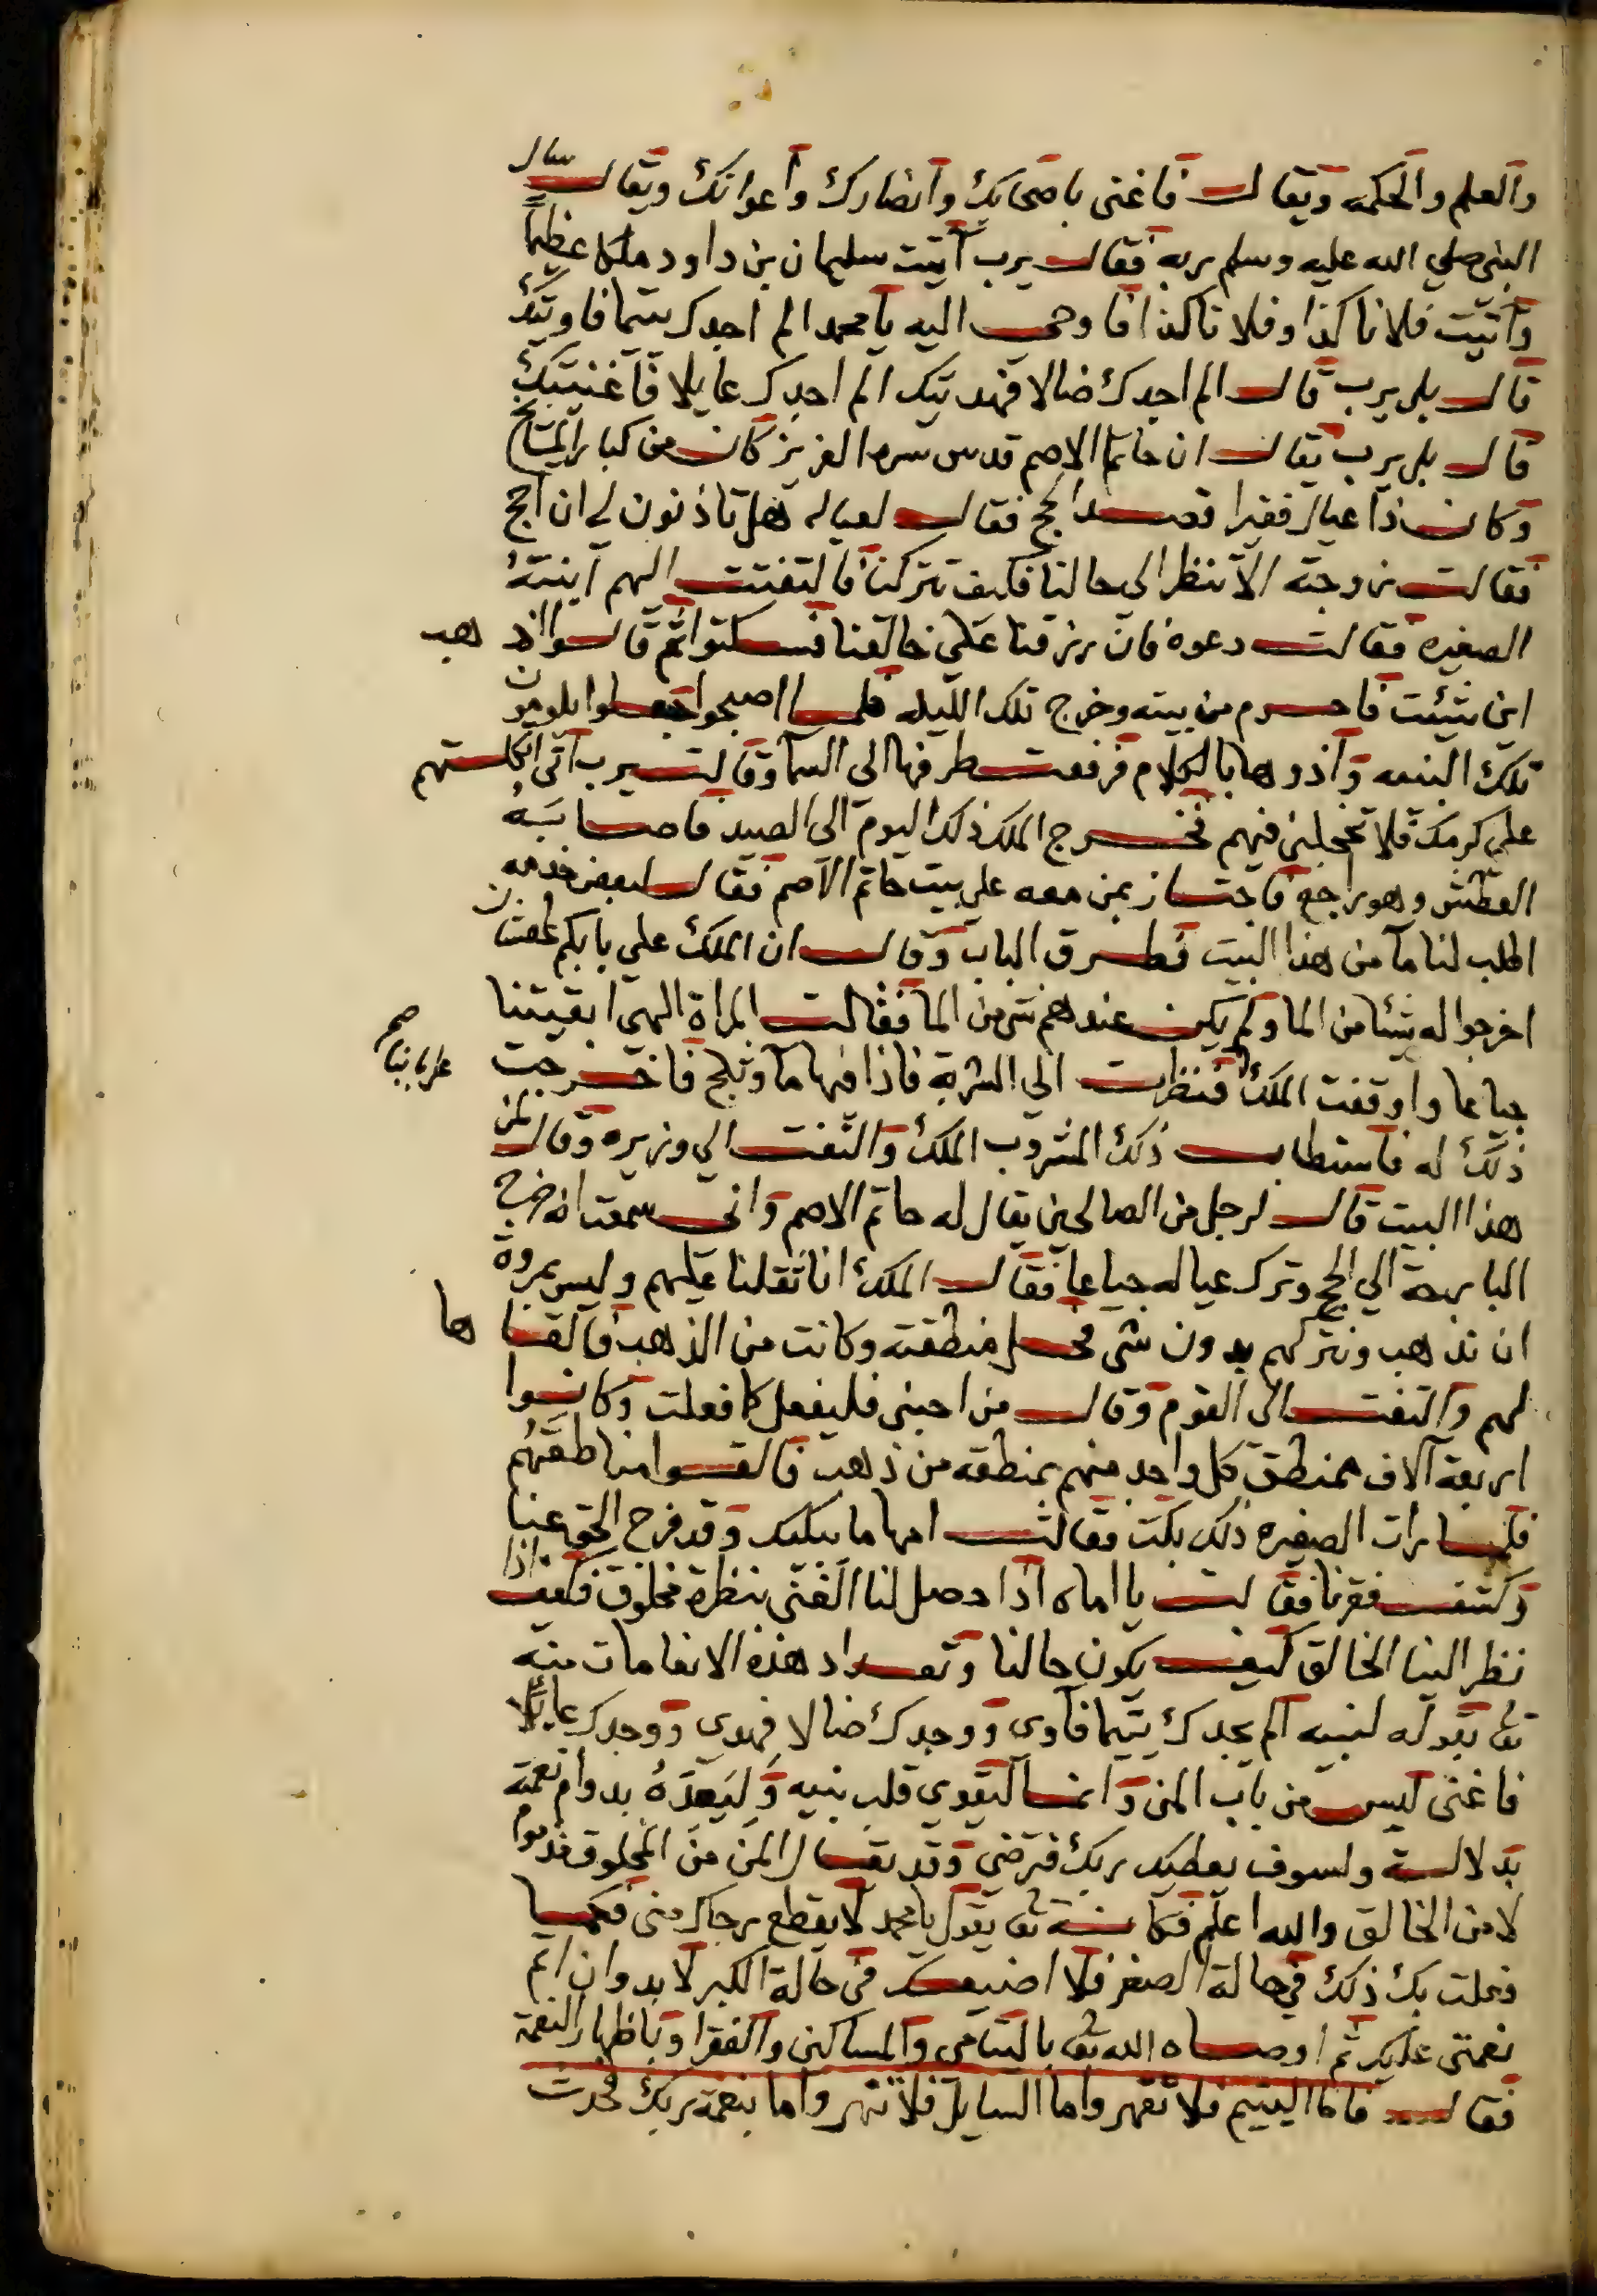 والعلم والحكمه ويقال فاغنى باصحابك وانصارك واعوانك ويقال سال
النبي صلي الله عليه وسلم ربه فقال يرب آتيت سليمان بن داود ملكا عظيماً
وآتيت فلانا كذا وفلانا كذا فاوحى اليه يا محمد الم اجدك يتيما فاويتك
قال بلى يرب قال الم اجدك ضالا فهديتك الم اجدك عايلا فاغنيتك
قال بلى يرب يقال ان حاتما الاصم قدس سره العزيز كان من كبار المشايخ
وكان ذا عيال فقيرا فقصد الحج فقال لعياله هل تاذنون لي ان احج
فقالت زوجته الا تنظر الى حالنا فكيف تتركنا فالتفتت اليهم ابنته
الصغيره فقالت دعوه فان رزقنا علي خالقنا فسكتوا ثم قالوا اذهب
اين شئت فاحرم من بيته وخرج تلك الليله فلما اصبحوا جعلوا يلومون
تلك البنت واذوها بالكلام فرفعت طرفها الى السما وقالت يرب اني اتكلتهم
علي كرمك فلا تخجلني فيهم فخرج الملك ذلك اليوم الى الصيد فاصابه
العطش وهو راجع فاجتاز بمن معه علي بيت حاتم الاصم فقال لبعض خدمه
اطلب لنا ما من هذا البيت فطرق الباب وقال ان الملك علي بابكم عطشان
اخرجوا له شيئا من الما ولم يكن عندهم شي من الما فقالت المراة الهي ابقيتنا
جياعا واوقفت الملك علي بابنا صح فنظرت الي الشربة فاذا فيها ما وثلج فاخرجت
ذلك له فاستطاب ذلك المشروب الملك والتفت الي وزيره وقال لمن
هذا البيت قال لرجل من الصالحين يقال له حاتم الاصم واني سمعت انه خرج
البارحة الي الحج وترك عياله جياعا فقال الملك انا ثقلنا عليهم وليس بمروة
ان نذهب ونتركهم بدون شى فحل منطقته وكانت من الذهب فالقاها
لهم والتفت الى القوم وقال من احبني فليفعل كما فعلت وكانوا
اربعة آلاف ممنطق كل واحد منهم بمنطقه من ذهب فالقوا مناطقهم
فلما رات الصغيره ذلك بكت فقالت امها ما يبكيك وقد فرح الحق عنا
وكشف فقرنا فقالت يا اماه اذا حصل لنا الغنى بنظرة مخلوق فكيف اذا
نظر الينا الخالق كيف يكون حالنا وتعداد هذه الانعامات منه
تعالى بقوله لنبيه الم يجدك يتيما فآوى ووجدك ضالا فهدى ووجدك عايلا
فاغنى ليس من باب المن وانما ليقوي قلب نبيه وَلِيَعِدَهُ بدوام نعمته
بدلالة ولسوف يعطيك ربك فترضى وقد يقال المن من المخلوق مذموم
لا من الخالق والله اعلم فكانه تعالى يقول يا محمد لا يقطع رجاك مني فكما
فعلت بك ذلك في حالة الصغر فلا اضيعك في حالة الكبر لا بد وان اتم
نعمتى عليك ثم اوصاه الله تعالى باليتامى والمساكين والفقرا وباظهار النعمة
فقال فاما اليتيم فلا تقهر واما السايل فلا تنهر واما بنعمة ربك فحدث